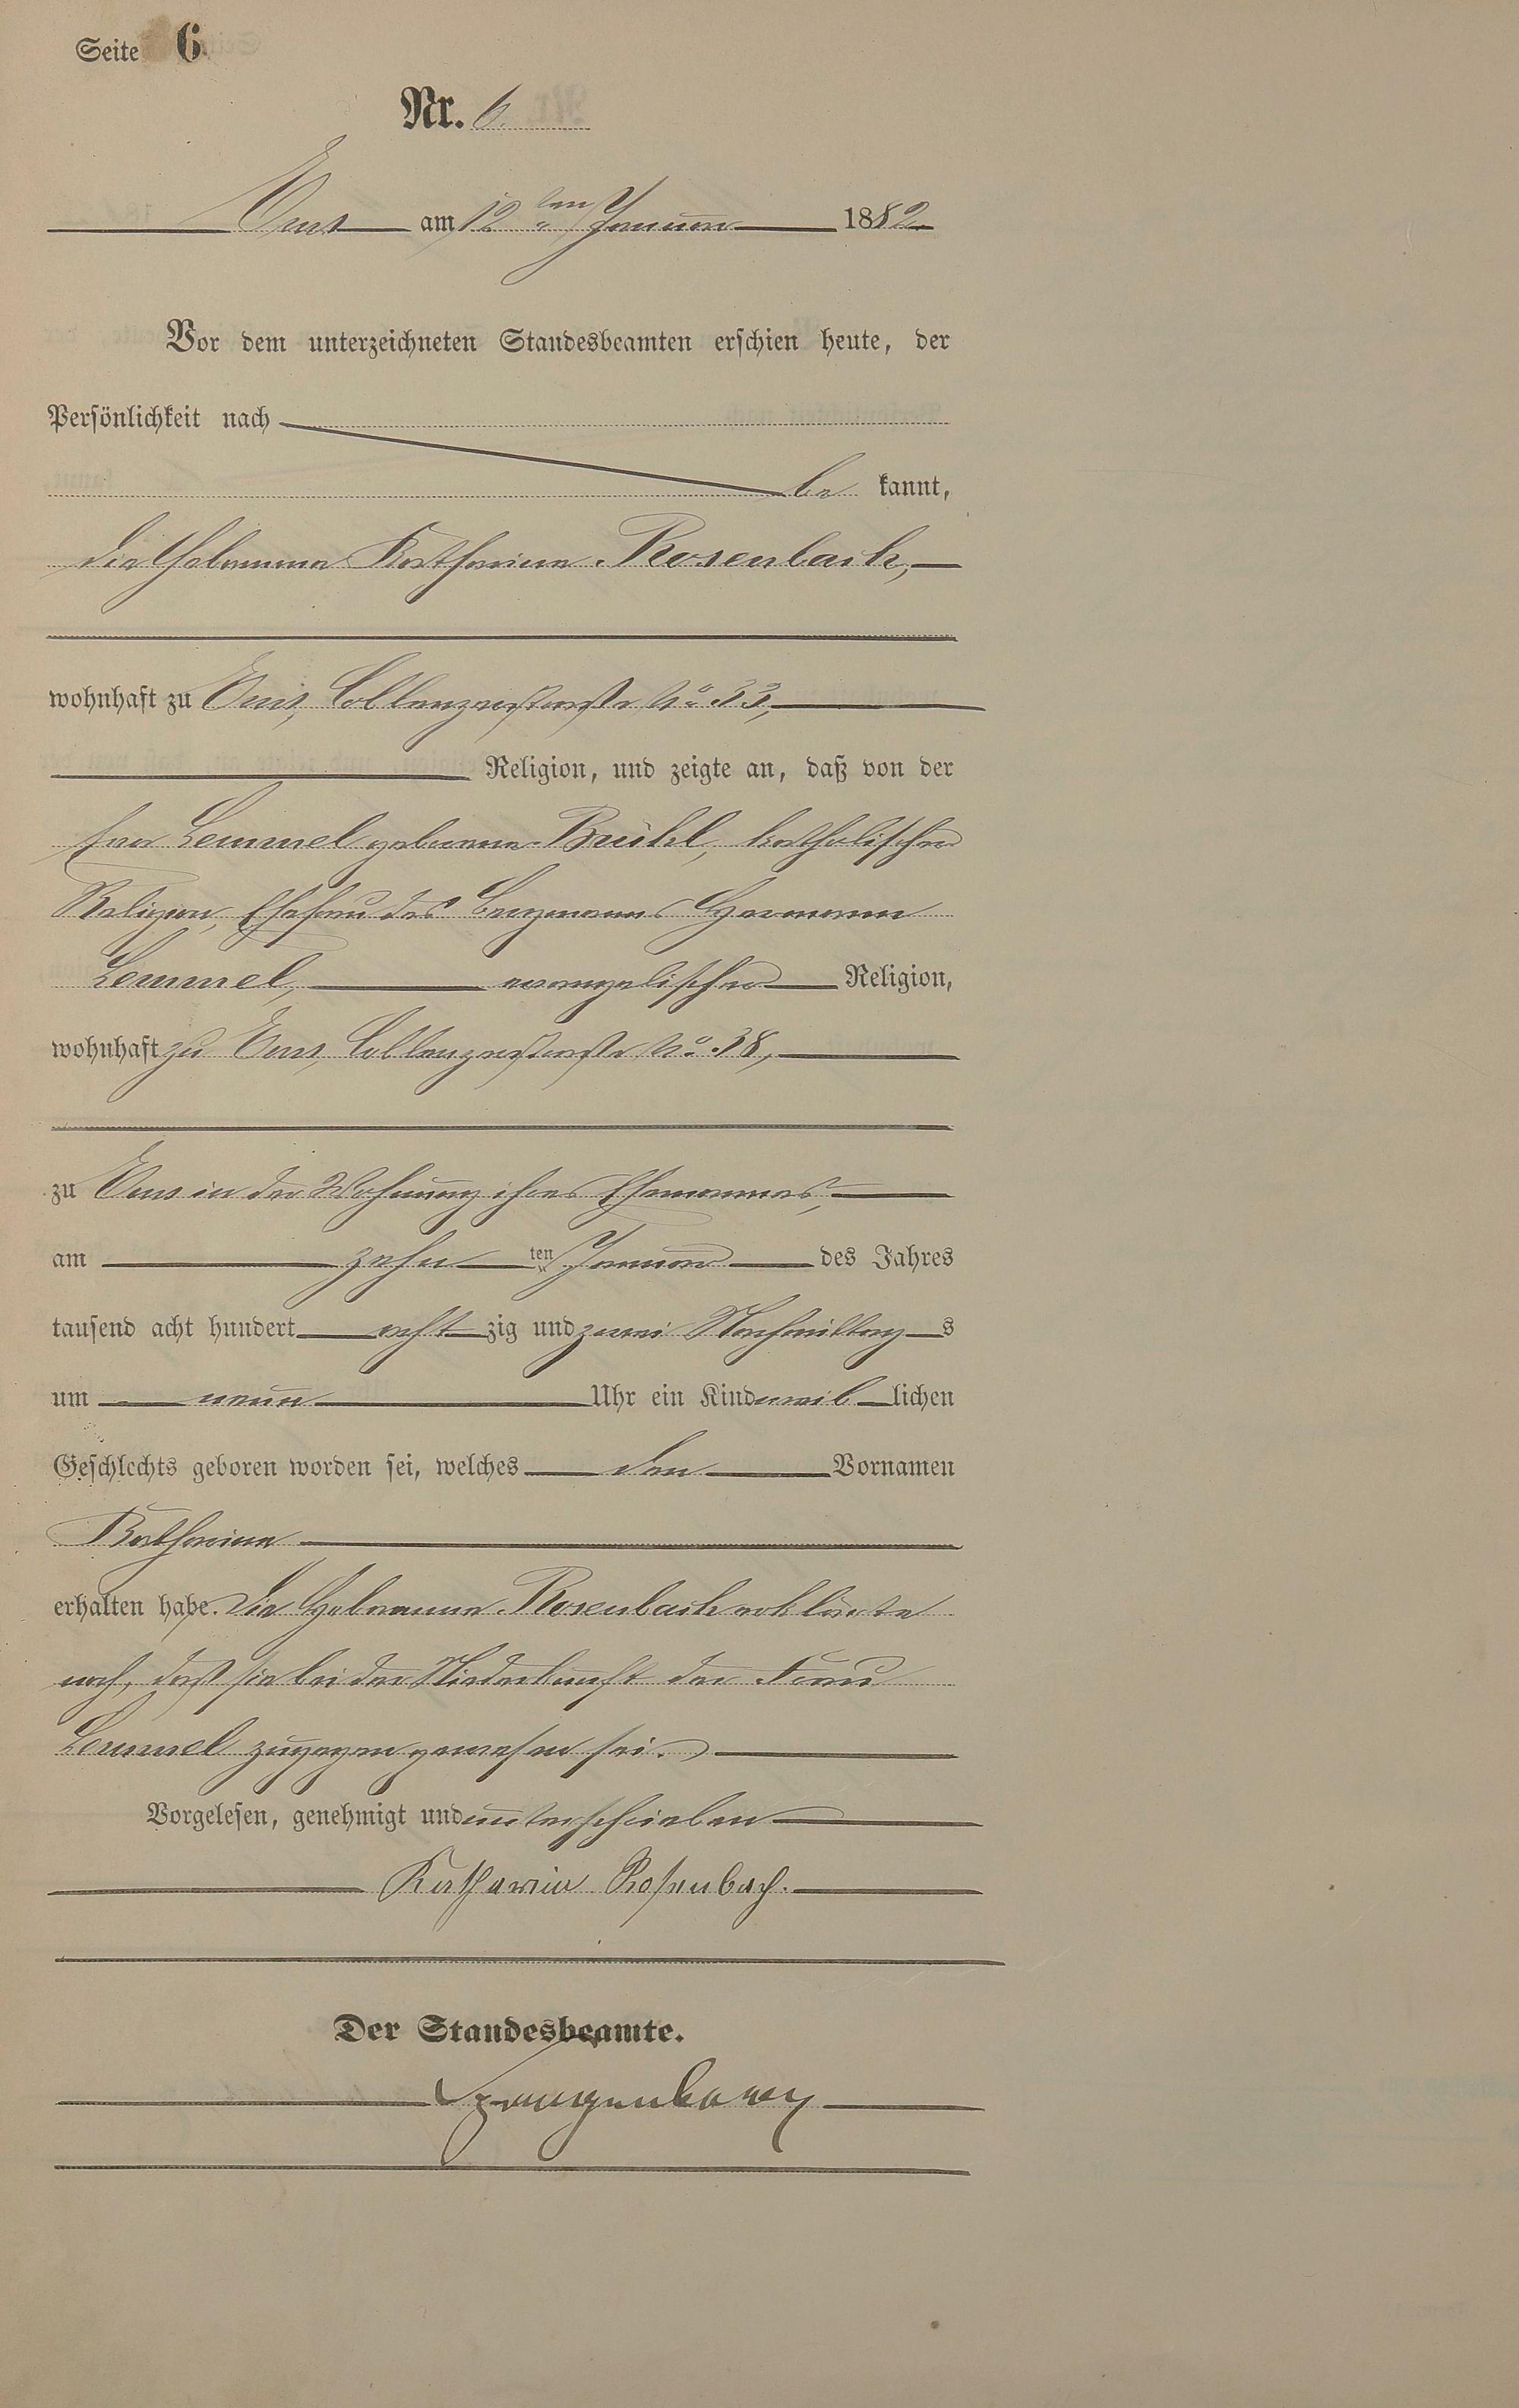 Seite 6
Nr. 6.
Ems am 12ten Januar 1882
Vor dem unterzeichneten Standesbeamten erschien heute, der
Persönlichkeit nach
be kannt,
die Hebamme Katharina Rosenbach,
wohnhaft zu Ems, Coblenzerstraße No 33,
Religion, und zeigte an, daß von der
Eva Lemmel geborene Brühl, katholischer
Religion, Ehefrau des Bergmanns Hermann
Lemmel, evangelischer Religion,
wohnhaft zu Ems, Coblenzerstraße No 38,
zu Ems in der Wohnung ihres Ehemannes,
am zehn ten Januar des Jahres
tausend acht hundert acht zig und zwei Nachmittag s
um neun Uhr ein Kind weib lichen
Geschlechts geboren worden sei, welches den Vornamen
Katharina
erhalten habe. Die Hebamme Rosenbach erklärte
noch, daß sie bei der Niederkunft der Frau
Lemmel zugegen gewesen sei.
Vorgelesen, genehmigt und unterschrieben
Katharina Rosenbach.
Der Standesbeamte.